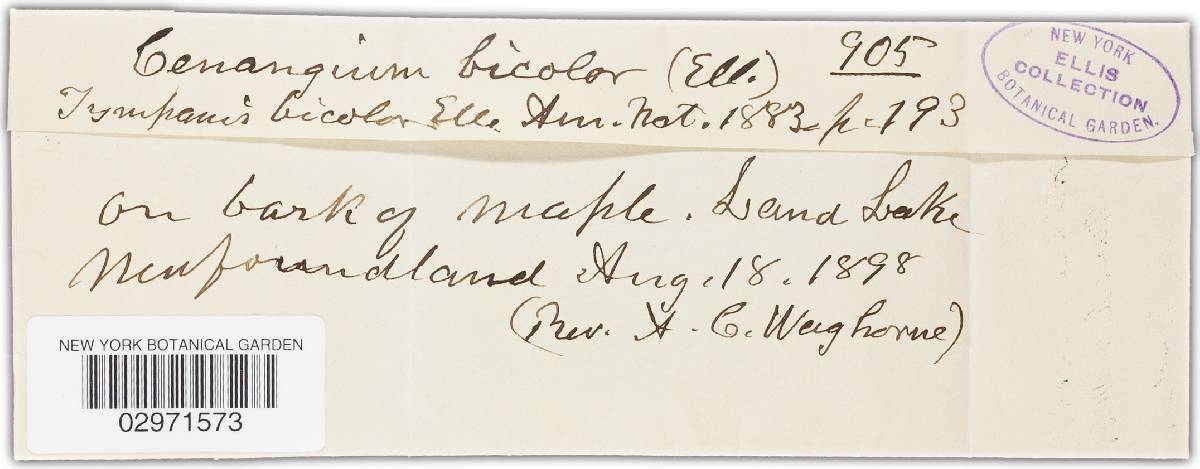 Cenangium bicolor (Ell.) 905
Tympanis bicolor Ell. Am. Nat. 1883 p. 193
on bark of maple. Sand Lake
Newfoundland Aug. 18. 1898
(Rev. A. C. Waghorne)
NEW YORK
ELLIS
COLLECTION
BOTANICAL GARDEN.
NEW YORK BOTANICAL GARDEN
02971573